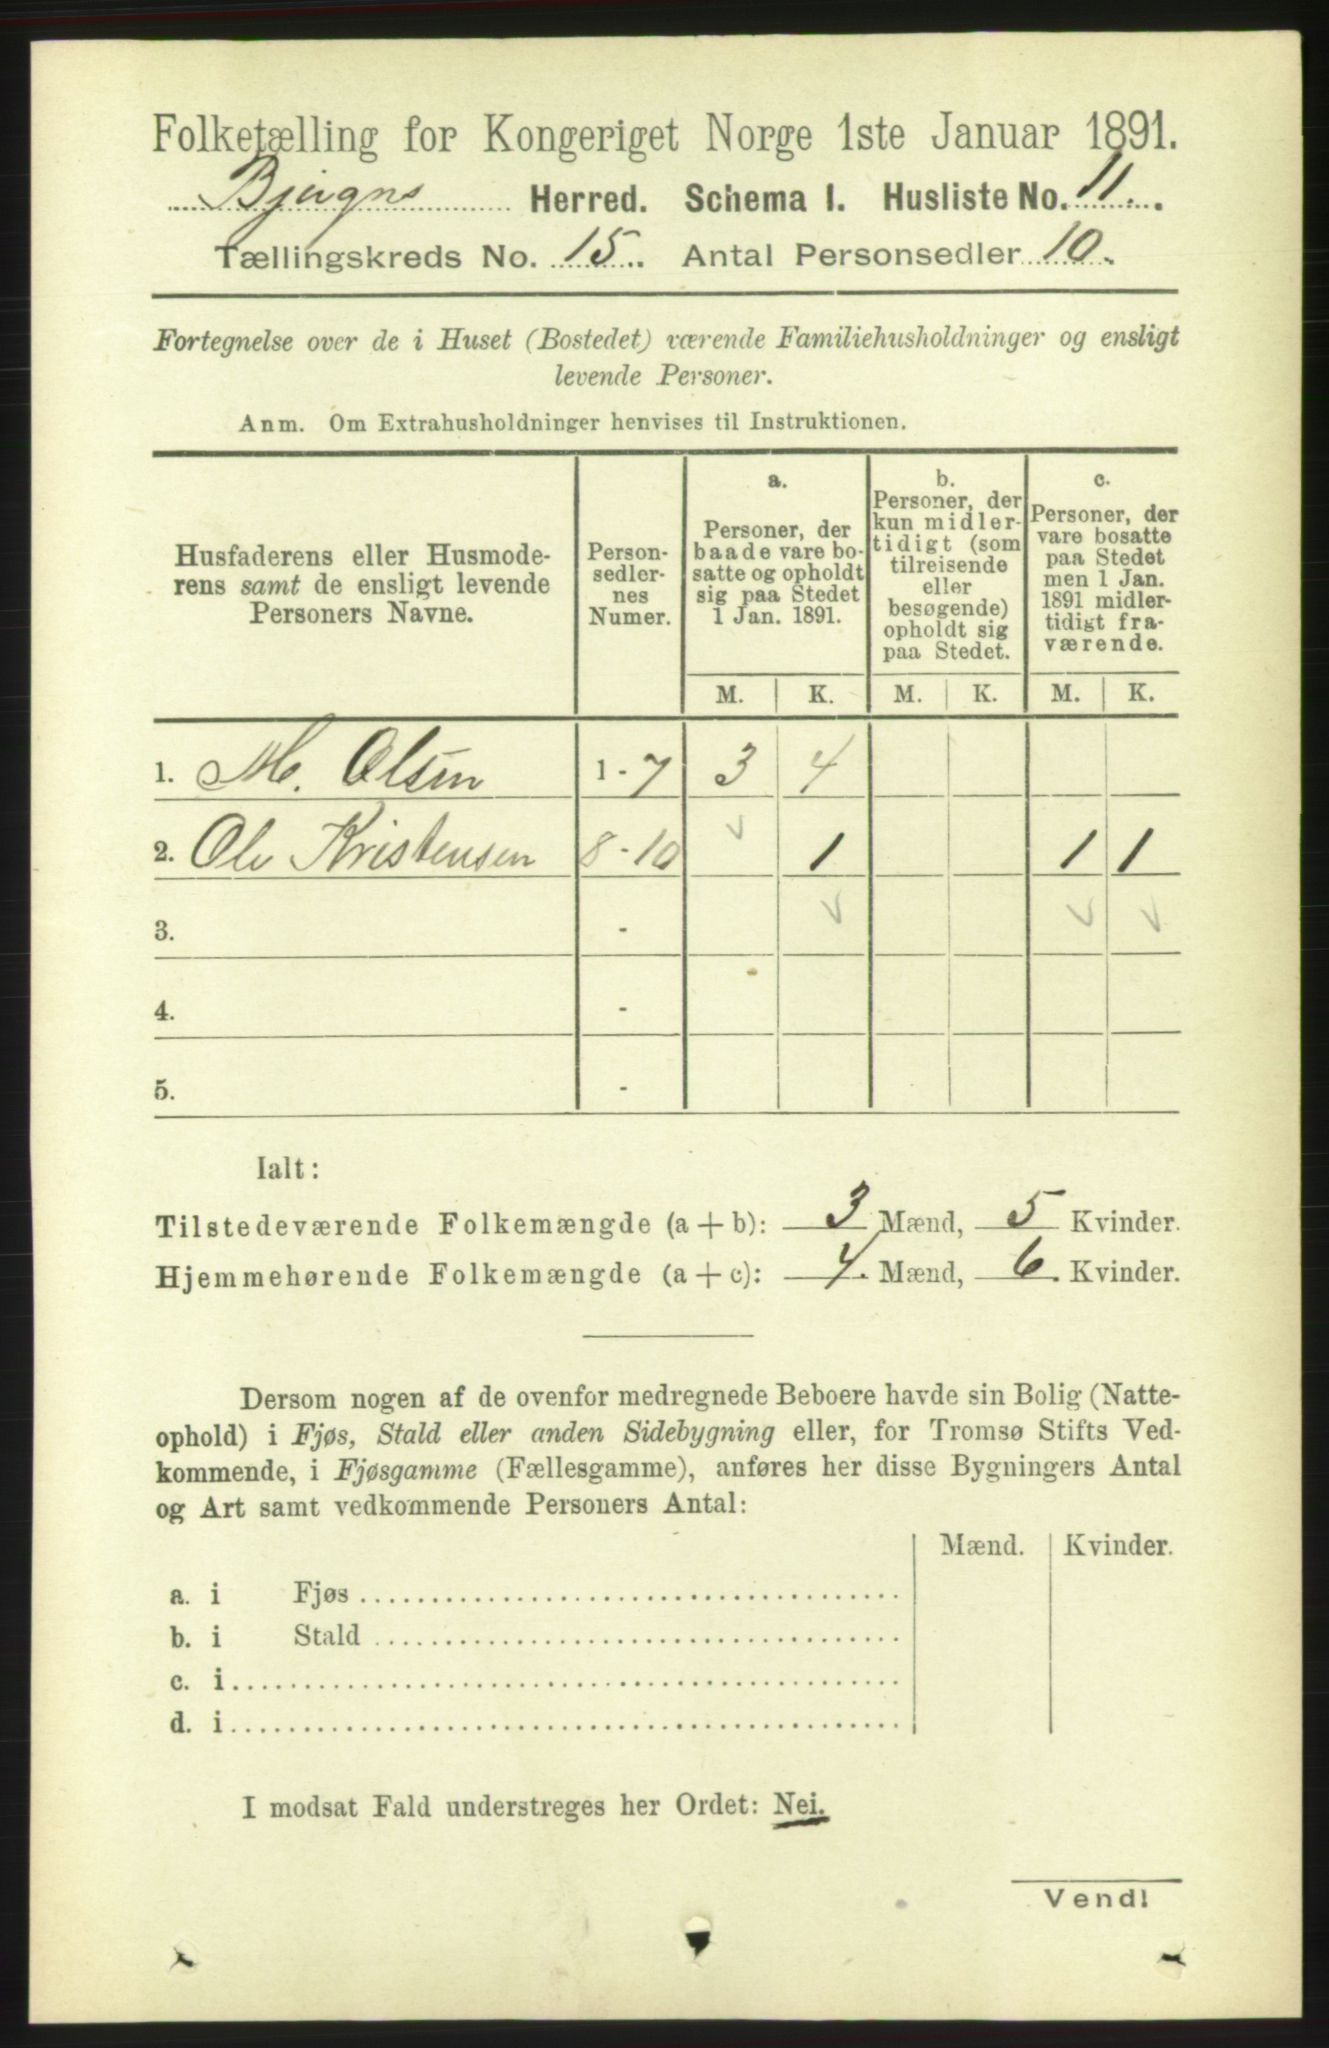 Folketælling for Kongeriget Norge 1ste Januar 1891.
Bjugns Herred. Schema I. Husliste No. 11.
Tællingskreds No. 15. Antal Personsedler 10.
Fortegnelse over de i Huset (Bostedet) værende Familiehusholdninger og ensligt
levende Personer.
Anm. Om Extrahusholdninger henvises til Instruktionen.
Husfaderens eller Husmode-
rens samt de ensligt levende
Personers Navne.
Person-
sedler-
nes
Numer.
a.
Personer, der
baade vare bo-
satte og opholdt
sig paa Stedet
1 Jan. 1891.
b.
Personer, der
kun midler-
tidigt (som
tilreisende
eller
besøgende)
opholdt sig
paa Stedet.
c.
Personer, der
vare bosatte
paa Stedet
men 1 Jan.
1891 midler-
tidigt fra-
værende.
M. K. M. K. M. K.
1. M. Olsen 1-7 3 4
2. Ole Kristensen 8-10 1 1 1
3. -
4. -
5. -
Ialt:
Tilstedeværende Folkemængde (a + b): 3 Mænd, 5 Kvinder.
Hjemmehørende Folkemængde (a + c): 4. Mænd, 6. Kvinder.
Dersom nogen af de ovenfor medregnede Beboere havde sin Bolig (Natte-
ophold) i Fjøs, Stald eller anden Sidebygning eller, for Tromsø Stifts Ved-
kommende, i Fjøsgamme (Fællesgamme), anføres her disse Bygningers Antal
og Art samt vedkommende Personers Antal:
Mænd. Kvinder.
a. i Fjøs
b. i Stald
c. i
d. i
I modsat Fald understreges her Ordet: Nei.
Vend!